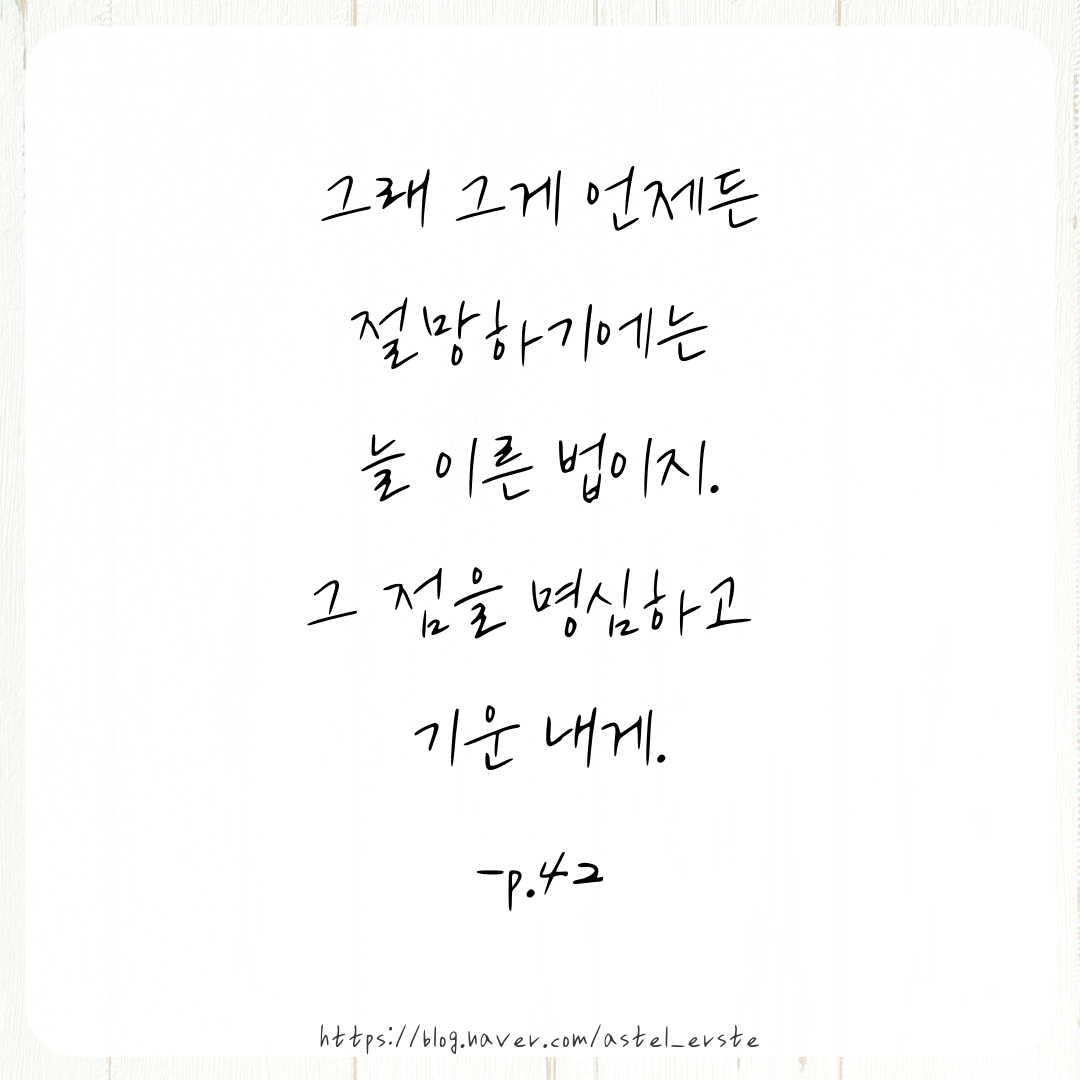 그래 그게 언제든
절망하기에는
늘 이른 법이지.
그 점을 명심하고
기운 내게.
-p.42
https://blog.naver.com/astel_erste